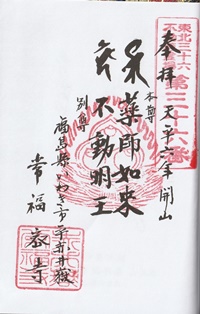 東北三十六
不動尊霊場
第三十六番
奉拝
天平六年開山
本尊
薬師如来
別尊
不動明王
福島県いわき市平赤井嶽
常福寺